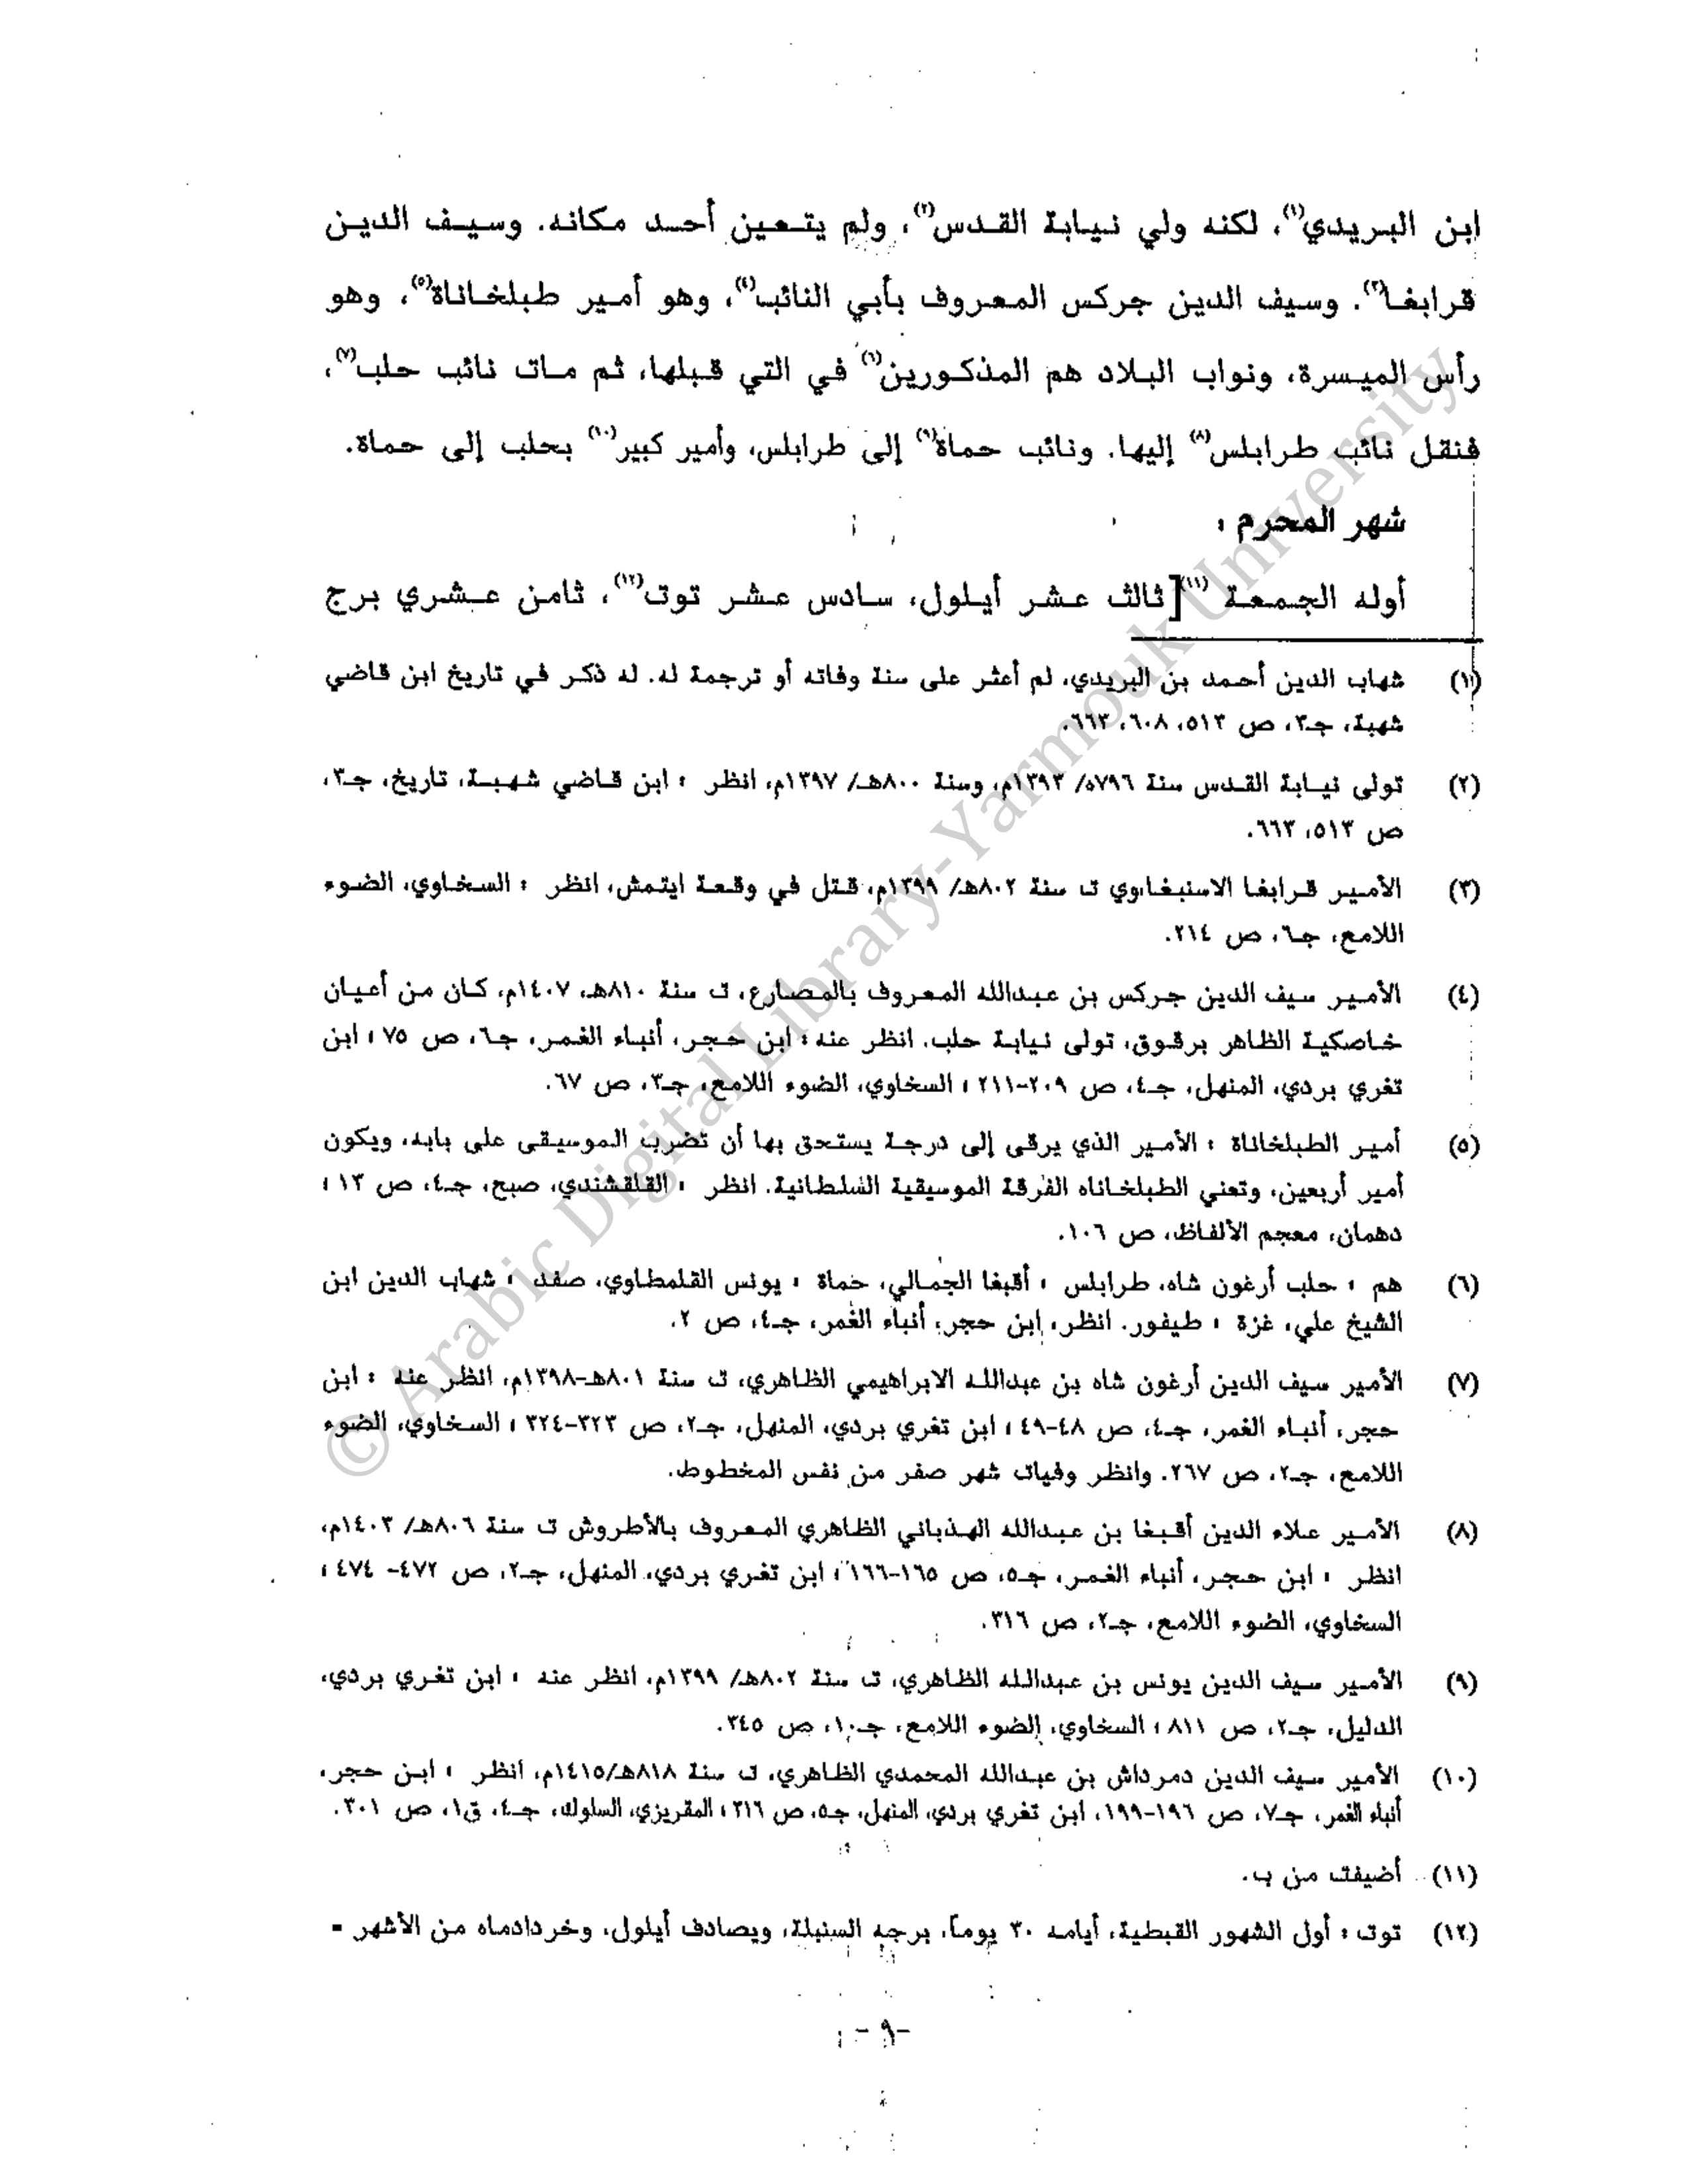 ابن البريدي(١)، لكنه ولي نيابة القدس(٢)، ولم يتعين أحد مكانه. وسيف الدين
قرابغا(٣). وسيف الدين جركس المعروف بأبي النائب(٤)، وهو أمير طبلخاناة(٥)، وهو
رأس الميسرة، ونواب البلاد هم المذكورين(٦) في التي قبلها، ثم مات نائب حلب(٧)،
فنقل نائب طرابلس(٨) إليها. ونائب حماة(٩) إلى طرابلس، وأمير كبير(١٠) بحلب إلى حماة.
شهر المحرم :
أوله الجمعة (١١)[ثالث عشر أيلول، سادس عشر توت(١٢)، ثامن عشري برج
(١) شهاب الدين أحمد بن البريدي، لم أعثر على سنة وفاته أو ترجمة له. له ذكر في تاريخ ابن قاضي
شهبة، جـ٣، ص ٥١٣، ٦٠٨، ٦٦٣.
(٢) تولى نيابة القدس سنة ٧٩٦ه/ ١٣٩٣م، وسنة ٨٠٠هـ/ ١٣٩٧م، انظر : ابن قاضي شهبة، تاريخ، جـ٣،
ص ٥١٣، ٦٦٣.
(٣) الأمير قرابغا الاسنبغاوي ت سنة ٨٠٢هـ/ ١٣٩٩م، قتل في وقعة ايتمش، انظر : السخاوي، الضوء
اللامع، جـ٦، ص ٢١٤.
(٤) الأمير سيف الدين جركس بن عبدالله المعروف بالمصارع، ت سنة ٨١٠هـ، ١٤٠٧م، كان من أعيان
خاصكية الظاهر برقوق، تولى نيابة حلب. انظر عنه : ابن حجر، أنباء الغمر، جـ٦، ص ٧٥ ؛ ابن
تغري بردي، المنهل، جـ٤، ص ٢٠٩-٢١١ ؛ السخاوي، الضوء اللامع، جـ٣، ص ٦٧.
(٥) أمير الطبلخاناة : الأمير الذي يرقى إلى درجة يستحق بها أن تضرب الموسيقى على بابه، ويكون
أمير أربعين، وتعني الطبلخاناه الفرقة الموسيقية السلطانية. انظر : القلقشندي، صبح، جـ٤، ص ١٣ ؛
دهمان، معجم الألفاظ، ص ١٠٦.
(٦) هم : حلب أرغون شاه، طرابلس : أقبغا الجمالي، حماة : يونس القلمطاوي، صفد : شهاب الدين ابن
الشيخ علي، غزة : طيفور. انظر، ابن حجر، أنباء الغمر، جـ٤، ص ٢.
(٧) الأمير سيف الدين أرغون شاه بن عبدالله الابراهيمي الظاهري، ت سنة ٨٠١هـ-١٣٩٨م، انظر عنه : ابن
حجر، أنباء الغمر، جـ٤، ص ٤٨-٤٩ ؛ ابن تغري بردي، المنهل، جـ٢، ص ٣٢٣-٣٢٤ ؛ السخاوي، الضوء
اللامع، جـ٢، ص ٢٦٧. وانظر وفيات شهر صفر من نفس المخطوط.
(٨) الأمير علاء الدين أقبغا بن عبدالله الهذباني الظاهري المعروف بالأطروش ت سنة ٨٠٦هـ/ ١٤٠٣م،
انظر : ابن حجر، أنباء الغمر، جـ٥، ص ١٦٥-١٦٦ ؛ ابن تغري بردي، المنهل، جـ٢، ص ٤٧٢- ٤٧٤ ؛
السخاوي، الضوء اللامع، جـ٢، ص ٣١٦.
(٩) الأمير سيف الدين يونس بن عبدالله الظاهري، ت سنة ٨٠٢هـ/ ١٣٩٩م، انظر عنه : ابن تغري بردي،
الدليل، جـ٢، ص ٨١١ ؛ السخاوي، الضوء اللامع، جـ١٠، ص ٣٤٥.
(١٠) الأمير سيف الدين دمرداش بن عبدالله المحمدي الظاهري، ت سنة ٨١٨هـ/١٤١٥م، انظر : ابن حجر،
أنباء الغمر، جـ٧، ص ١٩٦-١٩٩، ابن تغري بردي، المنهل، جـ٥، ص ٣١٦ ؛ المقريزي، السلوك، جـ٤، ق١، ص ٣٠١.
(١١) أضيفت من ب.
(١٢) توت : أول الشهور القبطية، أيامه ٣٠ يوماً، برجه السنبلة، ويصادف أيلول، وخردادماه من الأشهر =
-٩-
© Arabic Digital Library-Yarmouk University